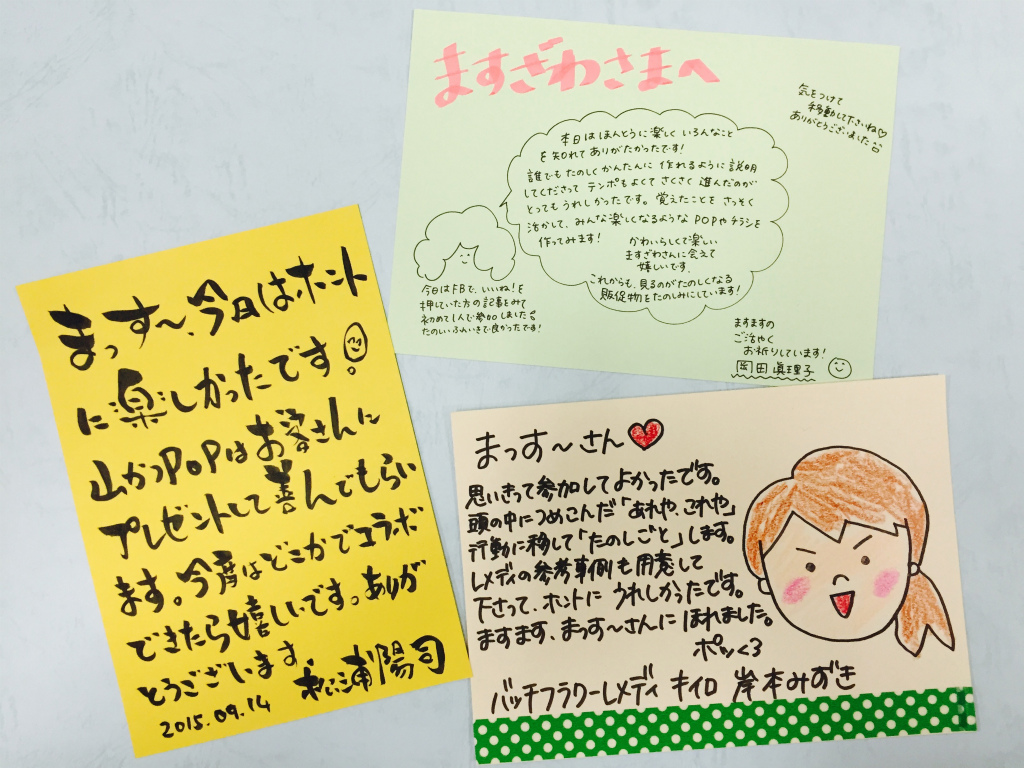 まっす〜、今日はホント
に楽しかったです。
山かつPOPはお客さんに
プレゼントして喜んでもらい
ます。今度はどこかでコラボ
できたら嬉しいです。ありが
とうございます
松浦陽司
2015.09.14
ますざわさまへ
気をつけて
移動して下さいね♡
ありがとうございました
本日はほんとうに楽しく いろんなこと
を知れてありがたかったです!
誰でもたのしくかんたんに作れるように説明
してくださって テンポもよくてさくさく進んだのが
とってもうれしかったです。覚えたことを さっそく
活かして、みんな楽しくなるような POPやチラシを
作ってみます!
かわいらしくて楽しい
ますざわさんに会えて
嬉しいです。
これからも、見るのがたのしくなる
販促物をたのしみにしています!
今日はFBで、いいね!を
押していた方の記事をみて
初めて1人で参加しました
たのしいふんいきで良かったです!
ますますの
ご活やく
お祈りしています!
岡田 眞理子
まっす〜さん♥
思いきって参加してよかったです。
頭の中につめこんだ「あれや、これや」
行動に移して「たのしごと」します。
レメディの参考事例も用意して
下さって、ホントに うれしかったです。
ますます、まっす〜さんに ほれました。
ポッ<3
バッチフラワーレメディ キイロ 岸本みずき